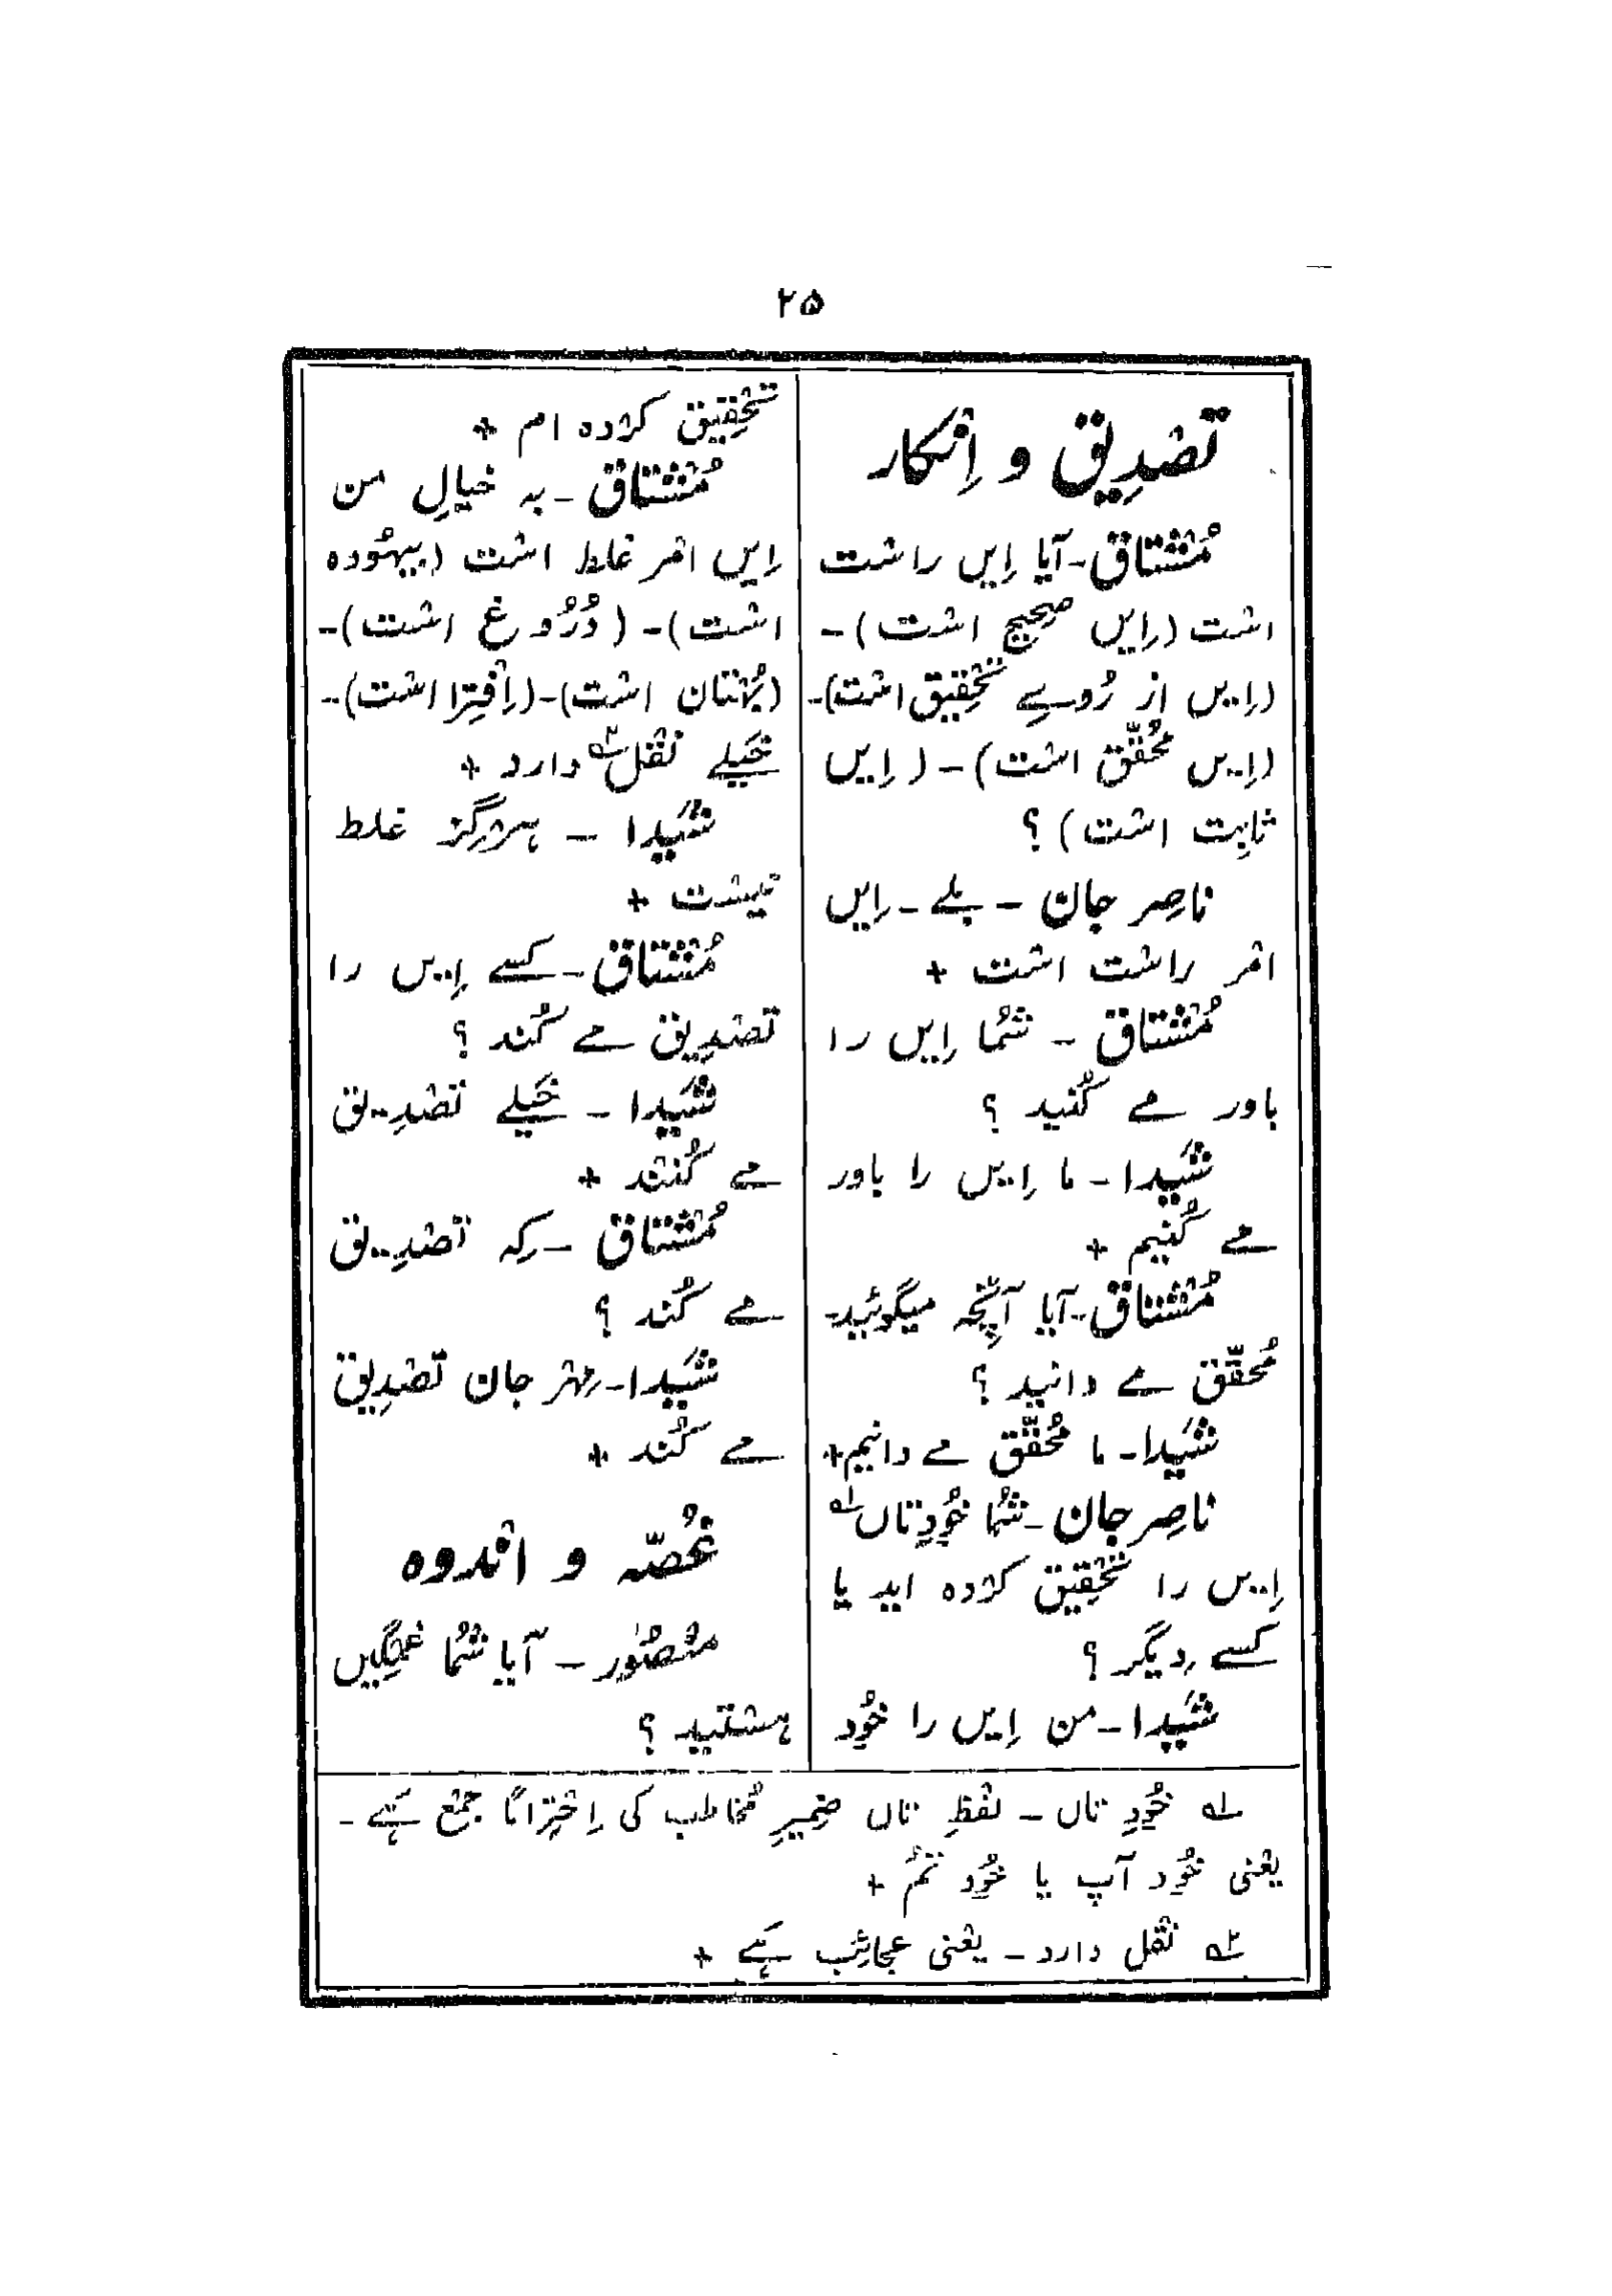 ۲۵
تصْدِیق و اِنْکار
مُشْتاق - آیا اِیں راسْت
اسْت (اِیں صحِیح اسْت) -
(اِیں از رُوے تحْقِیق اسْت) -
(اِیں مُحقَّق اسْت) - (اِیں
ثابِت اسْت) ؟
ناصِر جان - بلے - اِیں
امْر راسْت اسْت +
مُشْتاق - شُما اِیں را
باور مے کُنید ؟
شَیدا - ما اِیں را باور
مے کُنیم +
مُشْتاق - آیا آنْچِہ میگوئید -
مُحقَّق مے دانید ؟
شَیدا - ما مُحقَّق مے دانیم +
ناصِر جان - شُما خُودِ تاں لہ
اِیں را تحْقِیق کرْدہ اید یا
کسے دِیگر ؟
شَیدا - من اِیں را خُود
تحْقِیق کرْدہ ام +
مُشْتاق - بہ خیالِ من
اِیں امْر غلط اسْت (بیہُودہ
اسْت) - (دُرُوغ اسْت) -
(بُہْتان اسْت) - (اِفْتِرا اسْت) -
خَیلے نقْل ۲ہ دارد +
شَیدا - ہرْگِز غلط
نیسْت +
مُشْتاق - کسے اِیں را
تصْدِیق مے کُند ؟
شَیدا - خَیلے تصْدِیق
مے کُننْد +
مُشْتاق - کِہ تصْدِیق
مے کُند ؟
شَیدا - مِہْر جان تصْدِیق
مے کُند +
غُصّہ و انْدوہ
منْصُور - آیا شُما غمْگِیں
ہسْتید ؟
لہ خُودِ تاں - لفْظِ تاں ضمِیرِ مُخاطب کی اِحْتِراماً جمْع ہَے -
یعْنی خُود آپ یا خُود تُمْ +
۲ہ نقْل دارد - یعْنی عجائِب ہَے +